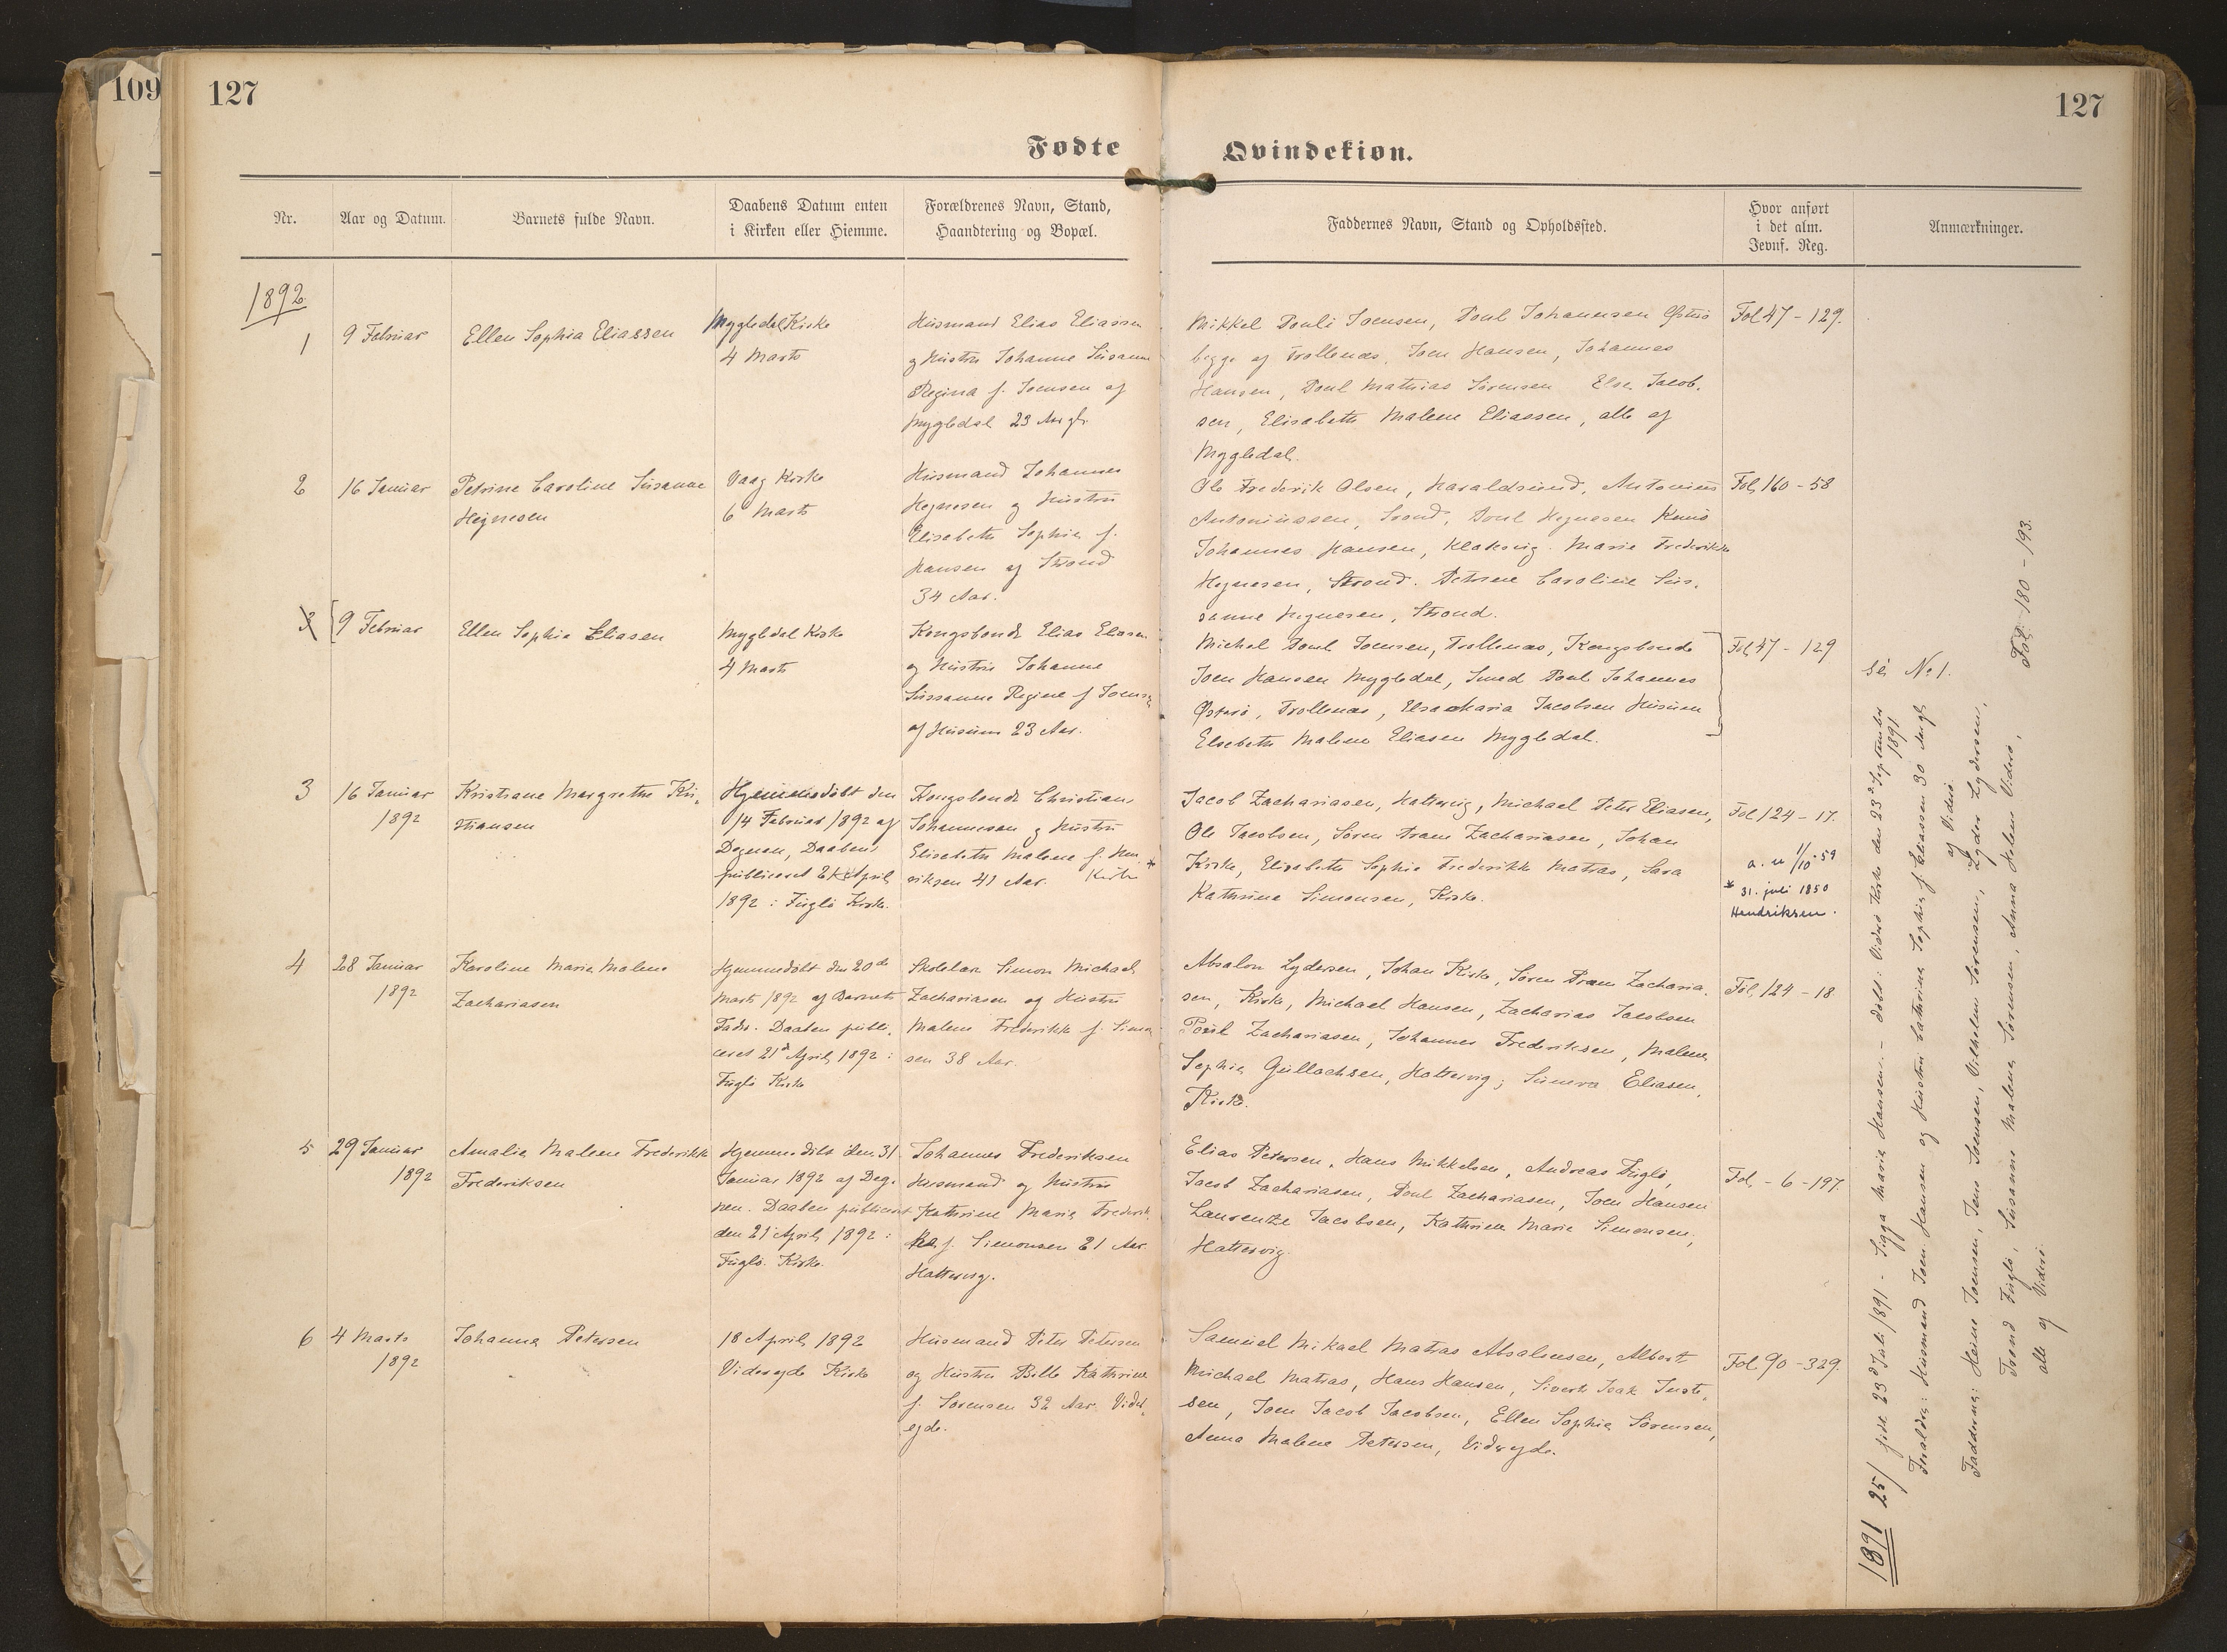 109
127
127
Fødte
Qvindekiøn.
Nr.
Aar og Datum.
Barnets fulde Navn.
Daabens Datum enten
i Kirken eller Hiemme.
Forældrenes Navn, Stand,
Haandtering og Bopæl.
Faddernes Navn, Stand og Opholdssted.
Hvor anført
i det alm.
Jevnf. Reg.
Anmærkninger.
1892
1
9 Februar
Ellen Sophia Eliassen
Mygledal Kirke
4 Marts
Husmand Elias Eliassen
og Hustru Johanne Susanne
Regina f. Joensen af
Mygledal 23 Aar gl.
Mikkel Pouli Joensen, Poul Johannesen Østerø
begge af Trøllenæs, Joen Hansen, Johannes
Hansen, Poul Mathias Sørensen Else Jacob-
sen, Elisabeth Malene Eliassen, alle af
Mygledal.
Fol 47 - 129.
2
16 Januar
Petrine Caroline Susanne
Hejnesen
Vaag Kirke
6 Marts
Husmand Johannes
Hejnesen og Hustru
Elisabeth Sophie f.
Hansen af Strond
34 Aar.
Ole Frederik Olsen, Haraldsund, Antonius
Antoniussen, Strond, Poul Hejnesen Kunø
Johannes Hansen, Klaksvig. Marie Frederikke
Hejnesen, Strond. Petrine Caroline Su-
sanne Hejnesen, Strond.
Fol, 160 - 58
3
9 Februar
Ellen Sophia Eliasen
Mygledal Kirke
4 Marts
Kongsbonde Elias Eliasen
og Hustru Johanne
Sussanne Regine f Joensen
af Husum 23 Aar.
Michel Poul Joensen, Trøllenæs, Kongsbonde
Joen Hansen Mygledal, Smed Poul Johannes
Østerø, Trøllenæs, Elsa Maria Jacobsen Husum
Elsebeth Malene Eliasen Mygledal.
Fol, 47 - 129
se No 1.
3
16 Januar
1892
Kristiane Margrethe Kri-
stiansen
Hjemmedøbt den
14 Februar 1892 af
Degnen, Daaben
publiceret 21 April
1892 i Fuglø Kirke.
Kongsbonde Christian
Johannesen og Hustru
Elisabeth Malene f. Hen- *
riksen 41 Aar. Kirke
Jacob Zachariasen, Hattervig, Michael Peter Eliasen,
Ole Jacobsen, Søren Fram Zachariasen, Johan
Kirke, Elisabeth Sophie Frederikke Matras, Sara
Kathrine Simonsen, Kirke.
Fol 124 - 17.
a. u 1/10-59
* 31. juli 1850
Hendriksen.
4
28 Januar
1892
Karoline Marie Malene
Zachariasen
Hjemmedøbt den 20de
Marts 1892 af Barnets
Fader. Daaben publi-
ceret 21d April 1892 i
Fuglø Kirke
Skolelær Simon Michael
Zachariasen og Hustru
Malene Frederikke f. Simon-
sen 38 Aar.
Absalon Lydersen, Johan Kirke, Søren Fram Zacharia-
sen, Kirke, Michael Hansen, Zacharias Jacobsen
Poul Zachariasen, Johannes Frederiksen, Malene
Sophie Gullachsen, Hattervig; Sunneva Eliasen,
Kirke.
Fol, 124 - 18
5
29 Januar
1892
Amalie Malene Frederikke
Frederiksen
Hjemmedøbt den 31
Januar 1892 af Deg-
nen. Daaben publiceret
den 21 April 1892 i
Fuglø Kirke.
Johannes Frederiksen
Husmand og Hustru
Kathrine Marie Frederik-
ke f. Simonsen 21 Aar
Hattervig.
Elias Petersen, Hans Mikkelsen, Andreas Fuglø,
Jacob Zachariasen, Poul Zachariasen, Joen Hansen
Laurentze Jacobsen, Kathrine Marie Simonsen,
Hattervig.
Fol, - 6 - 197.
6
4 Marts
1892
Johanna Petersen
18 April 1892
Videreyde Kirke
Husmand Peter Petersen
og Hustru Bille Kathrine
f. Sørensen 32 Aar Vider-
eyde.
Samuel Mikael Matras Absalonsen, Albert
Michael Matras, Hans Hansen, Sivert Isak Juste-
sen, Joen Jacob Jacobsen, Ellen Sophie Sørensen,
Anna Malene Petersen, Videreyde.
Fol, 90 - 329.
1891 25/ født 23d Juli 1891 - Sigga Marie Hansen. - døbt i Viderø Kirke den 23d September
1891
Forældre: Husmand Joen Hansen og Hustru Cathrine Sophie f. Eliassen 30 Aar gl.
af Viderø.
Fadderne: Heine Joensen, Jens Joensen, Vilhelm Sørensen, Lyder Lydersen,
Trond Fuglø, Susanne Malene Sørensen, Anna Helene Viderø,
alle af Viderø.
Fol: 180 - 193.